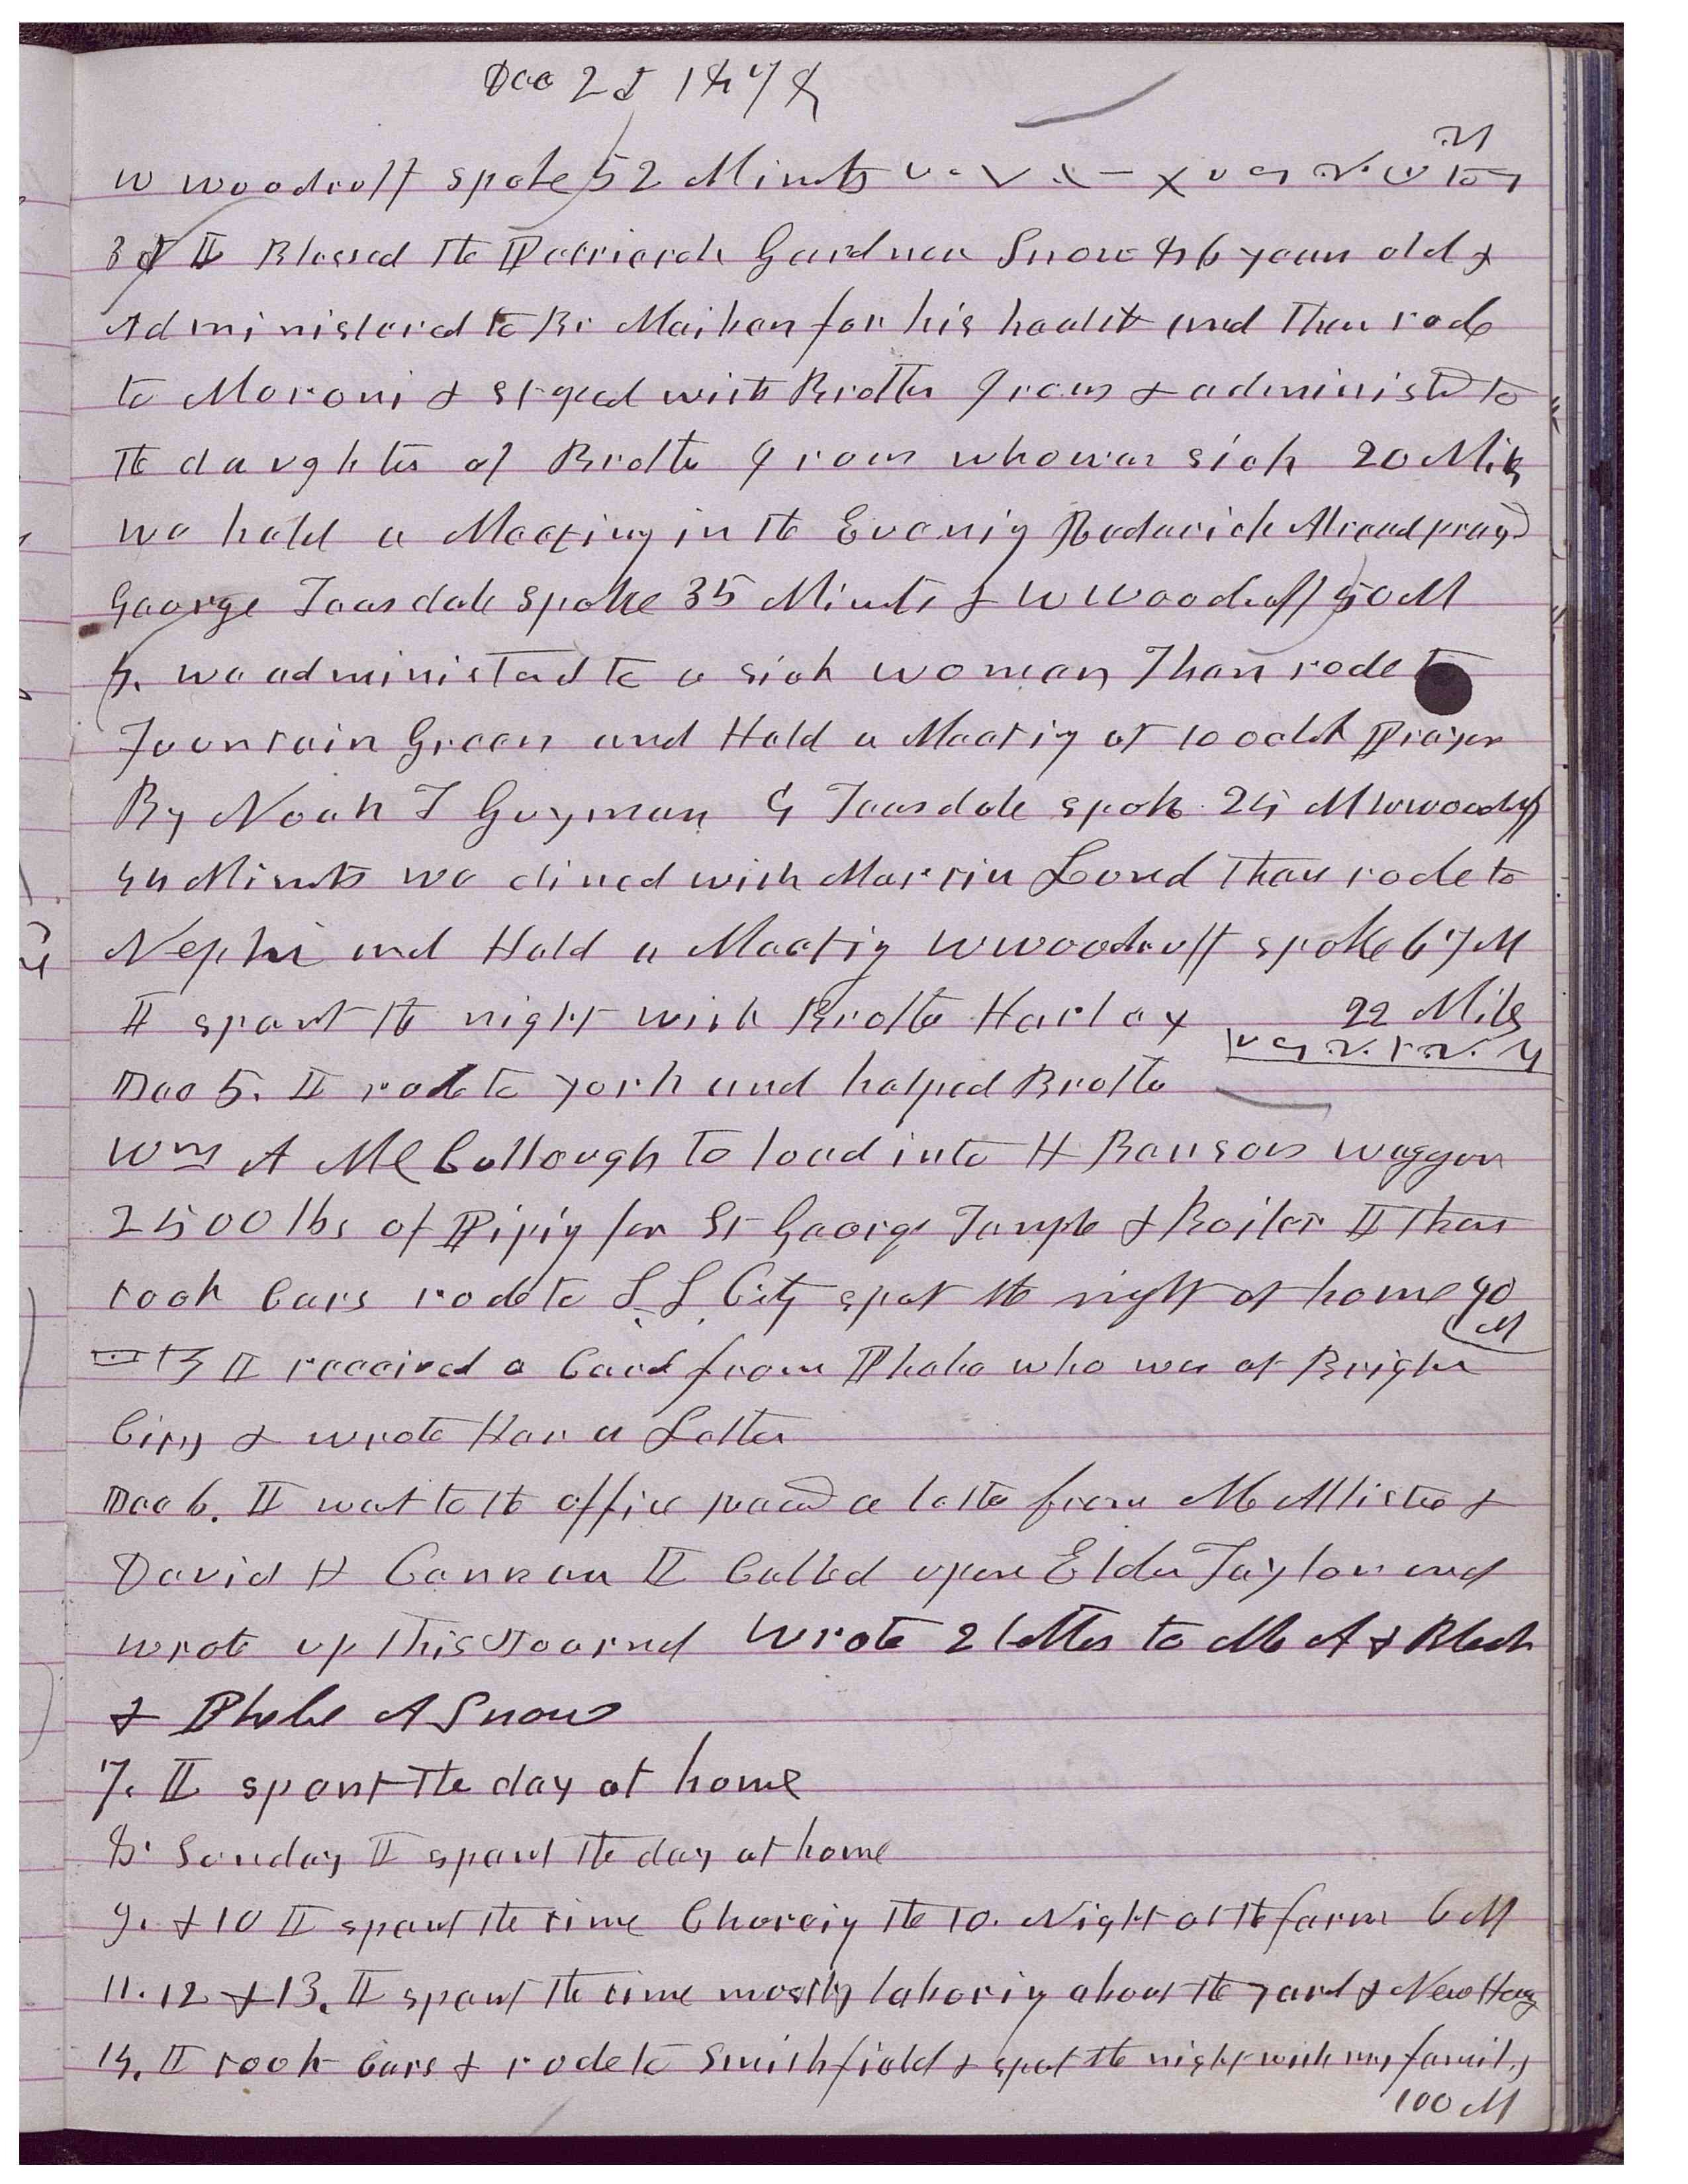 Dec 2d 1878
W Woodruff spoke 52 Minuts
3d I Blessed the Patriarch Gardner Snow 86 years old &
Administered to Br Maiben for his health and Then rode
to Moroni & stayed with Brother & administd to
the daughter of Brother who was sick 20 Mils
We held a Meeting in the Evenig prayd
George Teasdale spoke 35 Minuts & W Woodruff 50 M
4. we administered to a sick woman Then rode to
Fountain Green and Held a Meetig at 10 oclok Prayer
By Noah T Guyman G Teasdale spok 24 M W Woodruff
44 Minuts we dined with then rode to
Nephi and Held a Meetig W Woodruff spoke 67 M
I spent the night with Brother Hartley 22 Mils
Dec 5. I rode to York and helped Brother
Wm A McCullough to load into H waggon
2500 lbs of Pipig for St George Temple & Boiler I then
took Cars rode to S L City spet the night at home 90
M
I received a Card from Phebe who was at Brigha
City & wrote Her a Letter
Dec 6. I wet to the office recd a letter from McAllister &
David H Cannon I Called upon Elder Taylor and
wrote up this Journal wrote 2 letters to Mc A & Bleak
& Phebe A Snow
7. I spent the day at home
8. Sunday I spent the day at home
9. & 10 I spent the time Choreig the 10. Night at the farm 6 M
11. 12 & 13. I spent the time mostly laborig about the yard &
14. I took Cars & rode to Smithfield & spet the night with my family
100 M